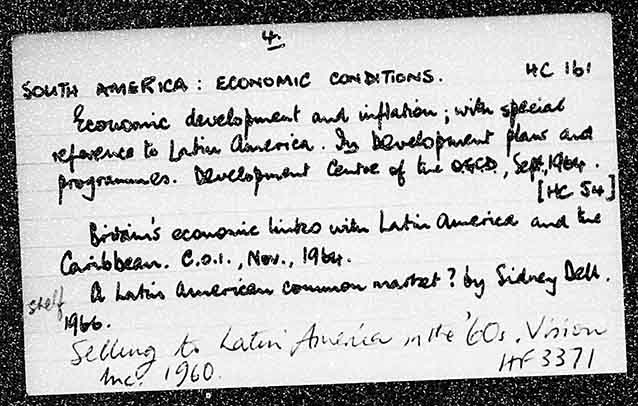 4.
SOUTH AMERICA : ECONOMIC CONDITIONS. HC 161
Economic development and inflation ; with special
reference to Latin America. In Development plans and
programmes. Development Centre of the O.E.C.D., Sept., 1964.
[HC 54]
Britain's economic links with Latin America and the
Caribbean. C.O.I., Nov., 1964.
shelf A Latin American common market? by Sidney Dell.
1966.
Selling to Latin America in the '60s. Vision
Inc. 1960. HF 3371